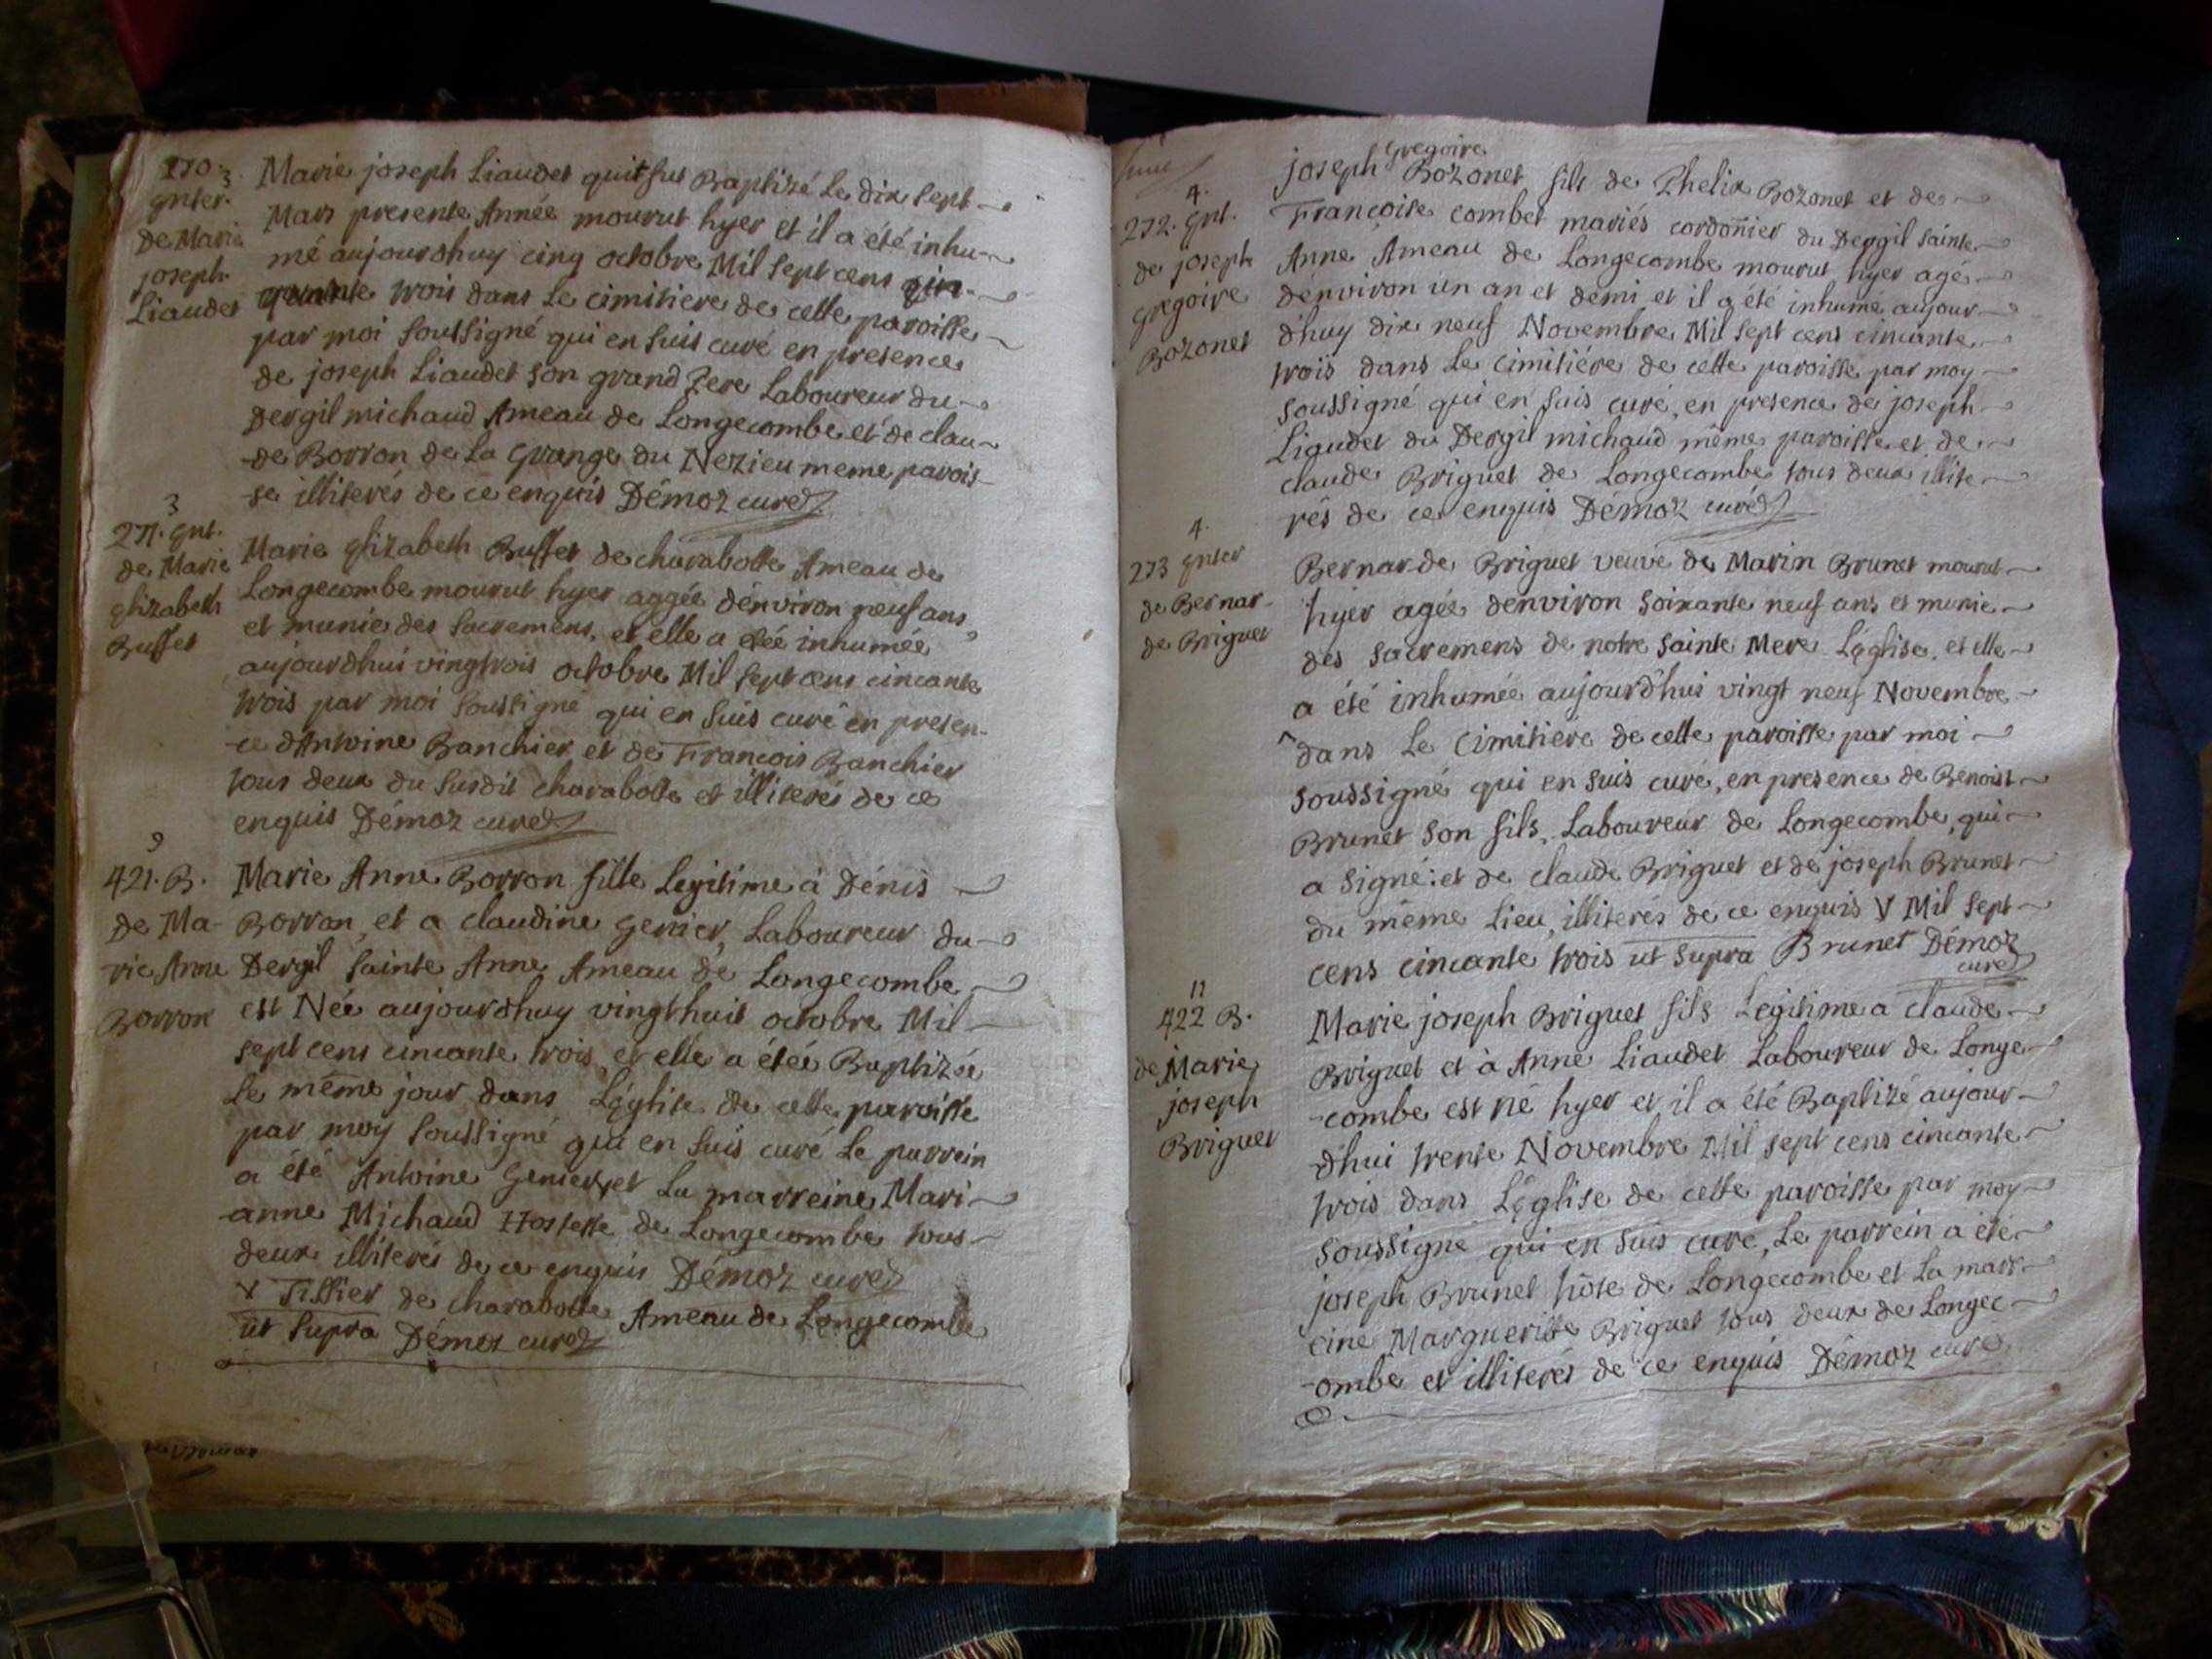 270. 3
enter.
De Marie
joseph
Liaudet
Marie joseph Liaudet qui fut Baptizé Le dix sept
Mars presente Année mourut hyer et il a été inhu-
mé aujourdhuy cinq octobre Mil sept cens cin-
quante trois dans Le cimitiere de cette paroisse
par moi soussigné qui en suis curé en presence
de joseph Liaudet son grand Pere Laboureur du
Dergil michaud Ameau de Longecombe et de clau-
-de Borron de La Grange du Nezieu meme parois-
-se illiterés de ce enquis Démoz curé
3
271. Ent.
de Marie
Elizabeth
Buffet
Marie Elizabeth Buffet de charabotte Ameau de
Longecombe mourut hyer aggée dénviron neuf ans,
et munie des sacremens, et elle a étée inhumée
aujourdhui vingtrois octobre Mil sept cens cincante
trois par moi soussigné qui en suis curé en presen-
-ce d'Antoine Banchier et de Francois Banchier
tous deux du susdit charabotte et illiterés de ce
enquis Démoz curé
9
421. B.
de Ma-
rie Anne
Borron
Marie Anne Borron fille Legitime à Dénis
Borron, et a claudine Genier, Laboureur du
Dergil sainte Anne Ameau de Longecombe
est Née aujourdhuy vingthuit octobre Mil
sept cens cincante trois, et elle a étée Baptizée
Le même jour dans L'église de cette paroisse
par moy soussigné qui en suis curé Le parrein
a été Antoine Genier, et La marreine Mari-
-anne Michaud Hostesse de Longecombe tous
deux illiterés de ce enquis Démoz curé
V Tissier de charabotte Ameau de Longecombe
ut supra Démoz curé
4.
272. Ent.
de joseph
gregoire
Bozonet
Gregoire
joseph Bozonet fils de Phelix Bozonet et de
Francoise combet mariés cordonnier du Dergil sainte
Anne Ameau de Longecombe mourut hyer agé
dénviron un an et démi et il a été inhumé aujour-
d'huy dix neuf Novembre Mil sept cens cincante
trois dans Le cimitiére de cette paroisse par moy
soussigné qui en suis curé, en presence de joseph
Liaudet du Dergil michaud même paroisse et de
claude Briguet de Longecombe tous deux illite-
rés de ce enquis Démoz curé
4.
273 enter
de Bernar-
de Briguet
Bernarde Briguet veuve de Marin Brunet mourut
hyer agée denviron soixante neuf ans et munie
des sacremens de notre sainte Mere L'église. et elle
a été inhumée aujourd'hui vingt neuf Novembre
dans Le Cimitiére de cette paroisse par moi
soussigné qui en suis curé, en presence de Benoist
Brunet son fils, Laboureur de Longecombe, qui
a signé: et de claude Briguet et de joseph Brunet
du même Lieu, illiterés de ce enquis V Mil sept
cens cincante trois ut supra Brunet Démoz
curé
11
422 B.
de Marie
joseph
Briguet
Marie joseph Briguet fils Legitime a claude
Briguet et à Anne Liaudet Laboureur de Longe
-combe est né hyer et il a été Baptizé aujour-
d'hui trente Novembre Mil sept cens cincante
trois dans L'église de cette paroisse par moy
soussigné qui en suis curé, Le parrein a été
joseph Brunet hôte de Longecombe et La marr-
eine Margueritte Briguet tous deux de Longec
-ombe et illiterés de ce enquis Démoz curé